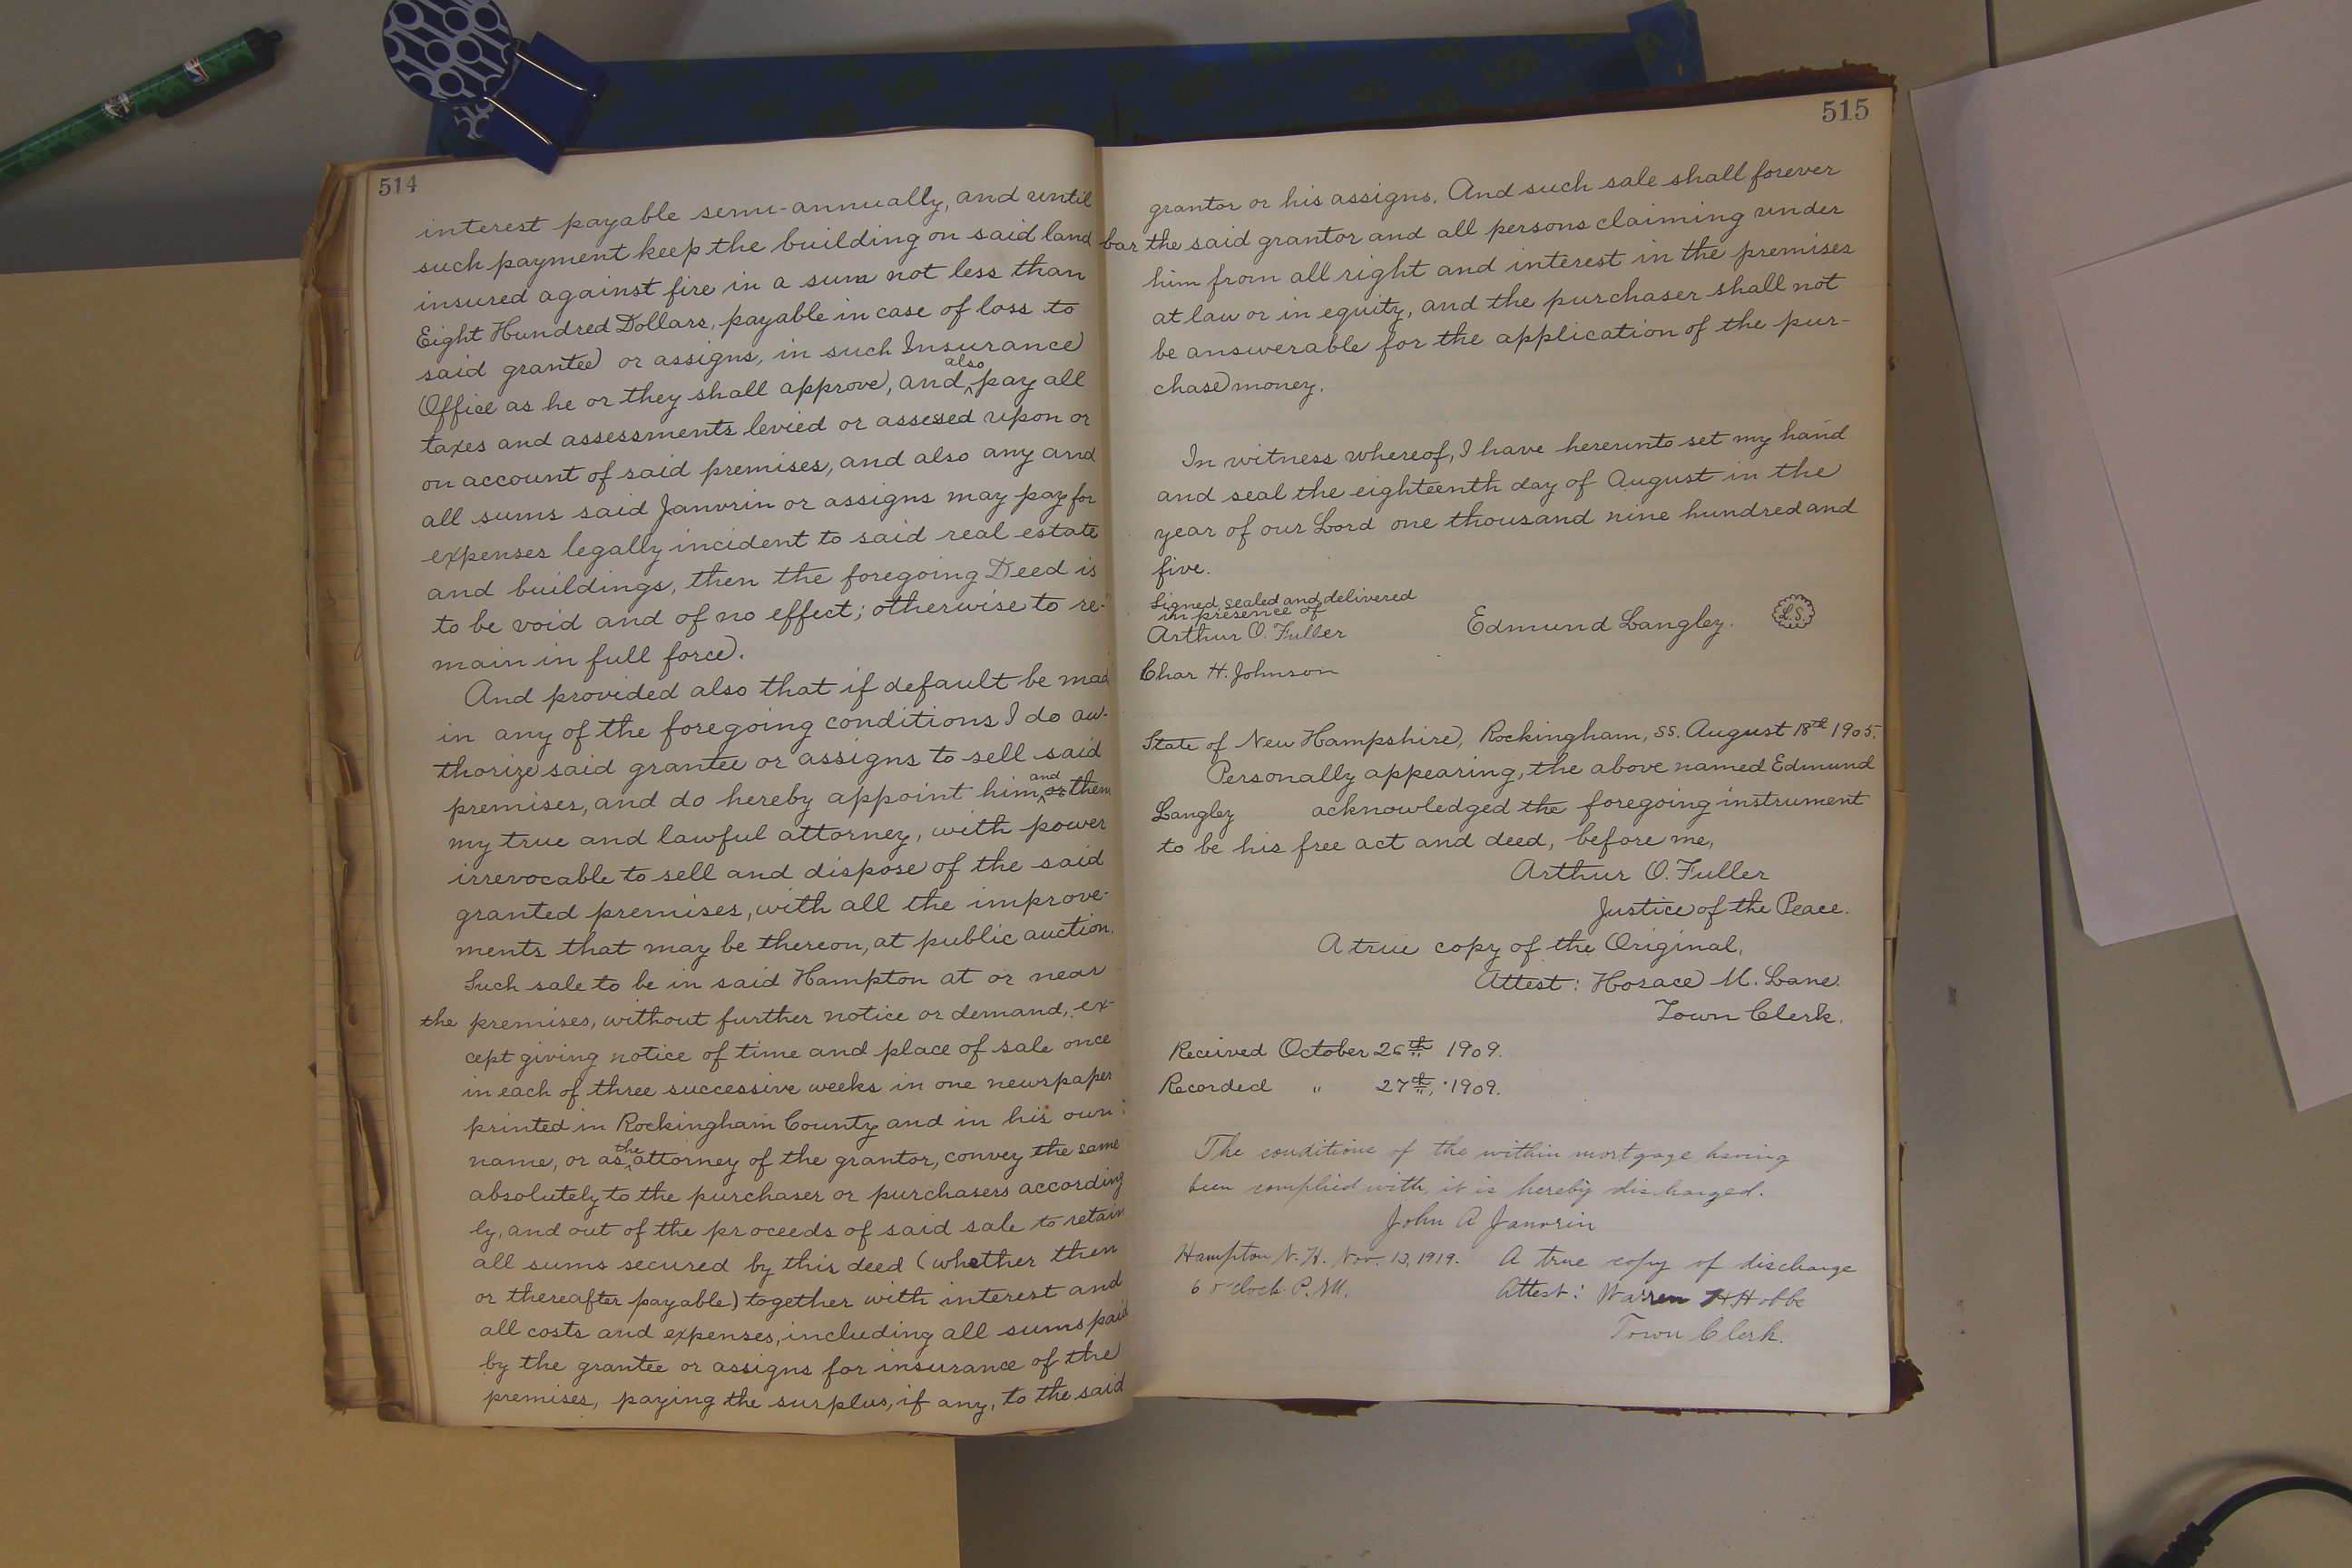 514
interest payable semi-annually, and until
such payment keep the building on said land
insured against fire in a sum not less than
Eight Hundred Dollars, payable in case of loss to
said grantee or assigns, in such Insurance
Office as he or they shall approve, and also pay all
taxes and assessments levied or assesed upon or
on account of said premises, and also any and
all sums said Janvrin or assigns may pay for
expenses legally incident to said real estate
and buildings, then the foregoing Deed is
to be void and of no effect; otherwise to re-
main in full force.
And provided also that if default be mad
in any of the foregoing conditions I do au-
thorize said grantee or assigns to sell said
premises, and do hereby appoint him and or them
my true and lawful attorney, with power
irrevocable to sell and dispose of the said
granted premises, with all the improve-
ments that may be thereon, at public auction.
Such sale to be in said Hampton at or near
the premises, without further notice or demand, ex-
cept giving notice of time and place of sale once
in each of three successive weeks in one newspaper
printed in Rockingham County and in his own
name, or as the attorney of the grantor, convey the same
absolutely to the purchaser or purchasers according
ly, and out of the proceeds of said sale to retain
all sums secured by this deed (whether then
or thereafter payable) together with interest and
all costs and expenses, including all sums paid
by the grantee or assigns for insurance of the
premises, paying the surplus, if any, to the said
515
grantor or his assigns. And such sale shall forever
bar the said grantor and all persons claiming under
him from all right and interest in the premises
at law or in equity, and the purchaser shall not
be answerable for the application of the pur-
chase money.
In witness whereof, I have hereunto set my hand
and seal the eighteenth day of August in the
year of our Lord one thousand nine hundred and
five.
Signed, sealed and delivered
in presence of
Arthur O. Fuller
Edmund Langley. L.S.
Char H. Johnson
State of New Hampshire, Rockingham, SS. August 18th 1905.
Personally appearing, the above named Edmund
Langley acknowledged the foregoing instrument
to be his free act and deed, before me,
Arthur O. Fuller
Justice of the Peace.
A true copy of the Original,
Attest: Horace M. Lane.
Town Clerk.
Received October 26th 1909.
Recorded " 27th, 1909.
The conditions of the within mortgage having
been complied with, it is hereby discharged.
John A Janvrin
Hampton N. H. Nov. 13, 1919. A true copy of discharge
6 o'clock P.M. Attest: Warren H Hobbs
Town Clerk.